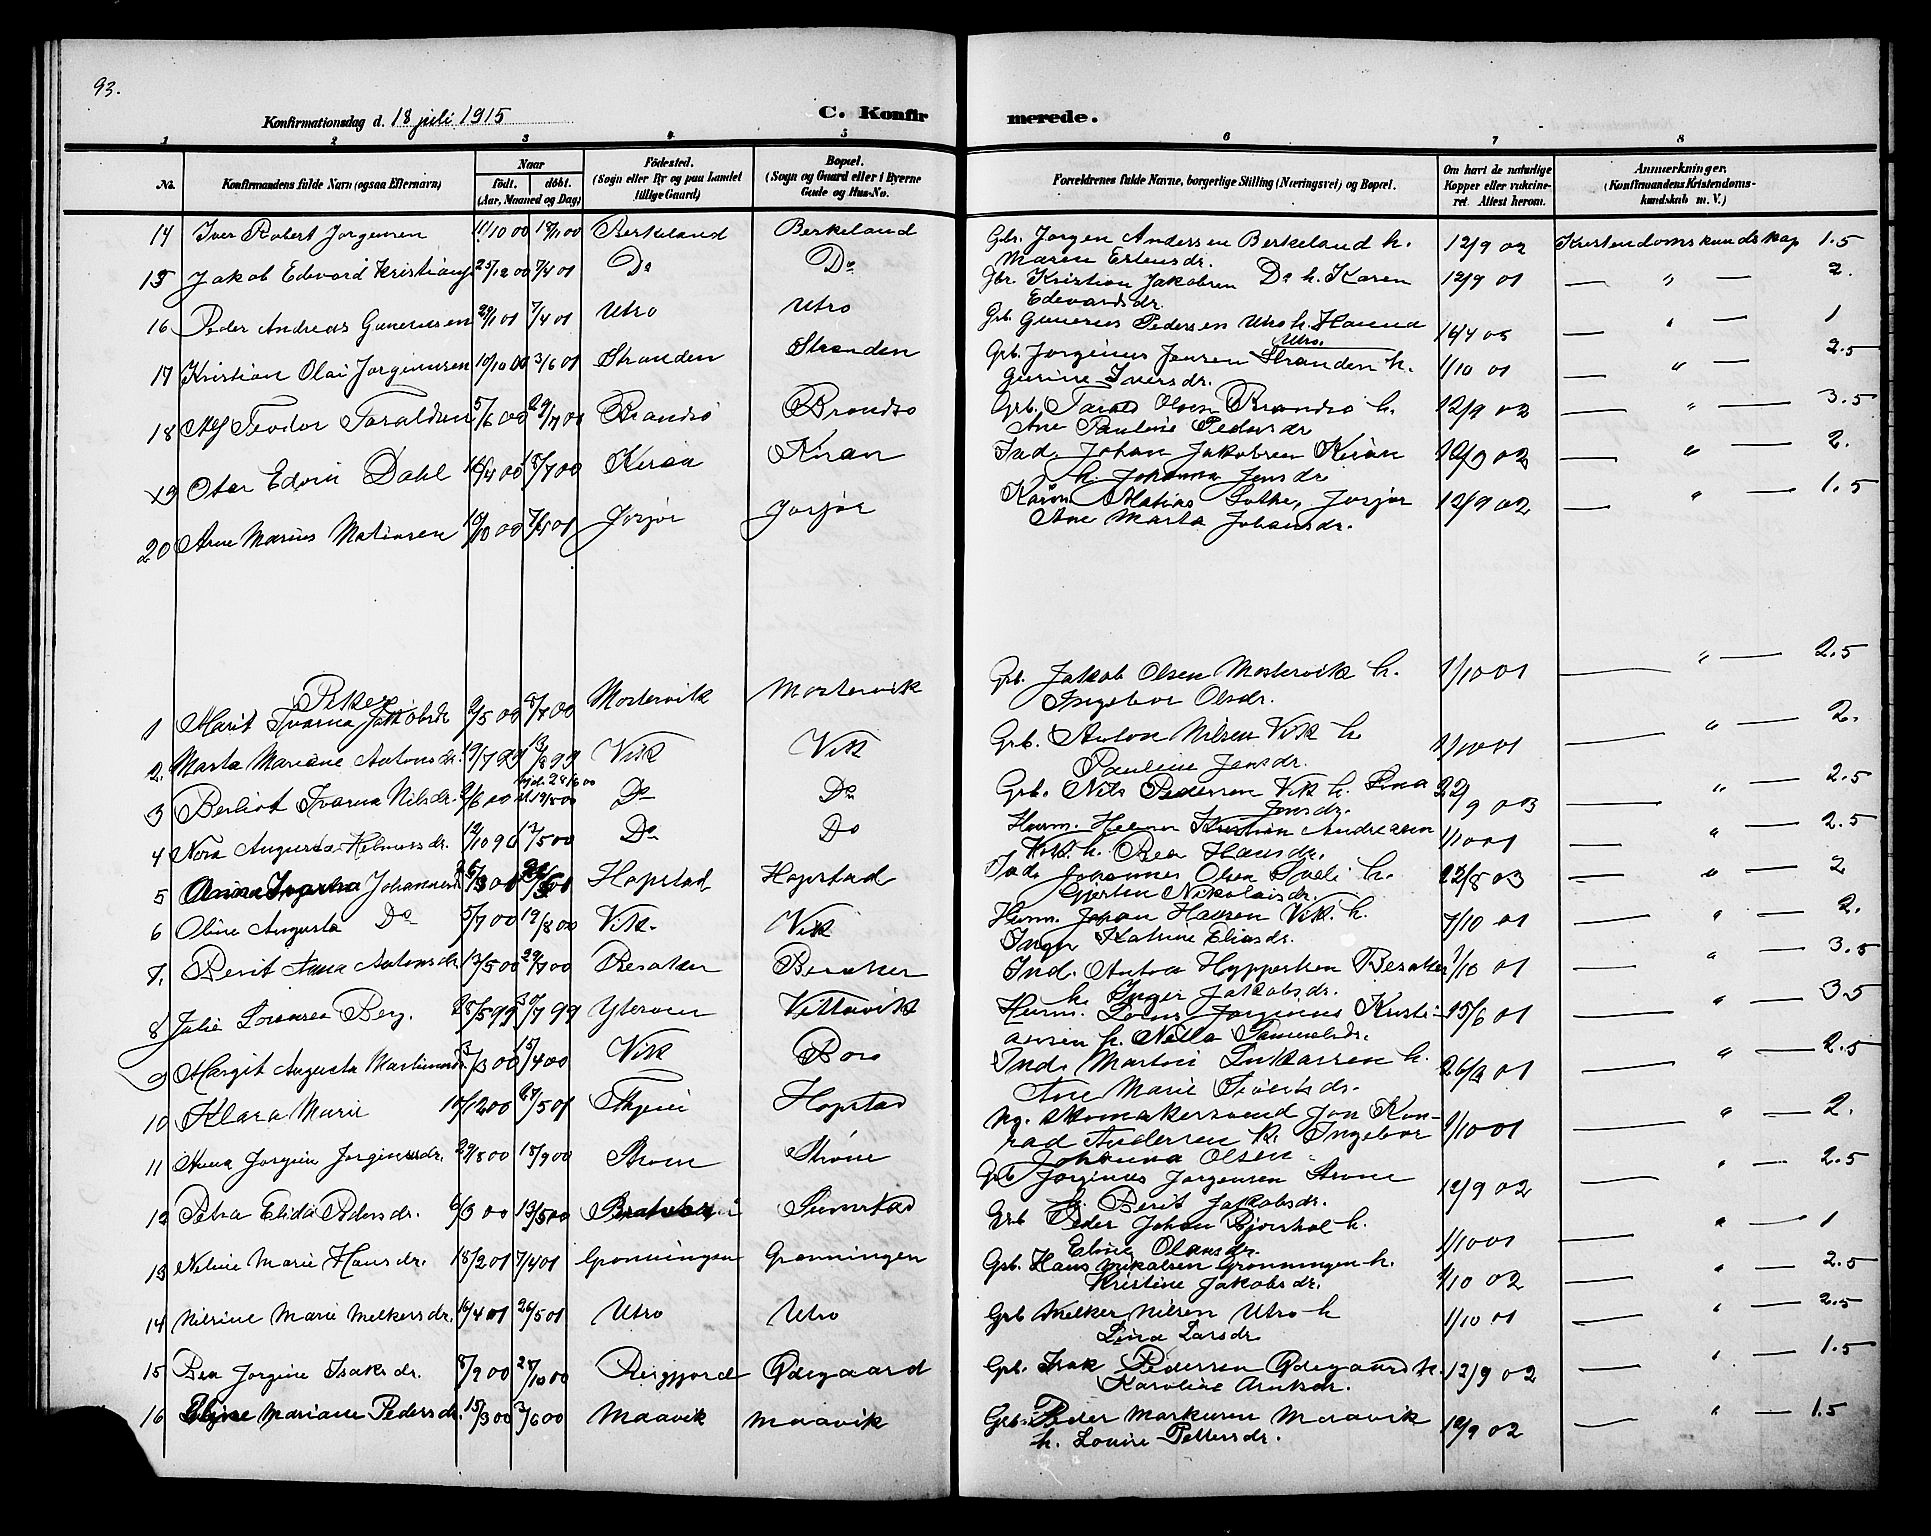 93.
Konfirmationsdag d. 18 juli 1915
C. Konfirmerede.
1 2 3 4 5 6 7 8
No. Konfirmandens fulde Navn (ogsaa Efternavn) Naar födt. döbt. (Aar, Maaned og Dag) Födested. (Sogn eller By og paa Landet tillige Gaard) Bopæl. (Sogn og Gaard eller i Byerne Gade og Hus-No. Forældrenes fulde Navne, borgerlige Stilling (Næringsvei) og Bopæl. Om havt de naturlige Kopper eller vakcineret. Attest herom. Anmærkninger. (Konfirmandens Kristendomskundskab m. V.)
14 Iver Robert Jorgensen 11/10 00 18/11 00 Berkeland Berkeland Gbr. Jorgen Andersen Berkeland h. 12/9 02 Kristendomskundskap 1.5
Maren Erlensdr.
15 Jakob Edevard Kristians 25/12 00 7/4 01 Do Do Gbr. Kristian Jakobsen Do h. Karen 12/9 01 — „ — 2.
Edevardsdr.
16 Peder Andreas Gunerusen 29/1 01 7/4 01 Utro Utro Grb. Gunerus Pedersen Utro h. Hanna 16/4 05 — „ — 1
17 Kristian Olai Jorginusen 19/10 00 3/6 01 Stranden Stranden Grb. Jorginus Jensen Stranden Utro. h. 1/10 01 — „ — 2.5
Gurine Iversdr.
18 Alf Teodor Taraldsen 5/6 00 29/7 00 Brandsø Brandsø Grb. Tarald Olsen Brandsø h. 12/9 02 — „ — 3.5
Ane Pauline Pedersdr
19 Otar Edvin Dahl 16/4 00 8/7 00 Kiran Kiran Ind. Johan Jakobsen Kiran 12/9 02 — „ — 2.
h. Johanna Jensdr
20 Arne Marius Matiasen 10/10 00 7/4 01 Jorjør Jorjør Kaarm Matias Lothe, Jorjør 12/9 02 — „ — 1.5
Ane Marta Johansdr.
Piker
1 Marit Ivarna Jakobsdr 2/5 00 8/7 00 Mostervik Mostervik Grb. Jakob Olsen Mostervik h. 1/10 01 — „ — 2.5
Ingebor Olsdr.
2. Marta Mariane Antonsdr. 19/7 99 13/8 99 Vik Vik Grb. Anton Nilsen Vik h. 1/10 01 — „ — 2.
Pauline Jensdr.
3 Berliot Ivarna Nilsdr. 2/6 00 Do Do Grb. Nils Pedersen Vik h. Lina 22/9 03 — „ — 2.5
Jensdr.
4 Nora Augusta Helmersdr. 12/10 96 13/5 00 Do Do Husm. Helmer Kristian Andreasen 1/10 01 — „ — 2.5
Vik h. Bea Hansdr.
5 Johannesdr 6/3 01 26/5 01 Hopstad Hopstad Ind. Johannes Olsen h. 22/8 03 — „ — 2
Gjertine Nikolaisdr.
6 Oline Augusta Do 5/7 00 19/8 00 Vik. Vik Husm. Johan Hansen Vik. h. 7/10 01 — „ — 2.
Inger Katrine Eliasdr.
7. Berit Anna Antonsdr. 13/5 00 29/7 00 Besaker Besaker Ind. Anton Besaker 1/10 01 — „ — 3.5
h. Inger Jakobsdr.
8 Julie Lorensea Berg. 28/5 99 30/7 99 Yterøen Vettavik Husm. Jorginus Kristi- 15/6 01 — „ — 3.5
ansen h. Nella Samuelsdr.
9 Margit Augusta Martinusdr. 3/3 00 15/4 00 Vik Boro Ind. Martin Lukassen h. 26/9 01 — „ — 2.5
Ane Marie Sivertsdr.
10 Klara Marie 10/12 00 27/5 01 Hopstad Ug. Skomakersvend Jon Kon- 1/10 01 — „ — 2.
rad Andersen h. Ingebor
Johanna Olsen
11 Anna Jorgine Jorginusdr. 29/8 00 18/9 00 Strøm Strøm Grb Jorginus Jorgensen Strøm 12/9 02 — „ — 2.5
h. Berit Jakobsdr.
12 Petra Elida Pedersdr. 6/3 00 13/5 00 Sumstad Grb Peder Johan Bjørshol h. 1/10 01 — „ — 1
Eline Olausdr.
13 Neline Marie Hansdr. 18/2 01 7/4 01 Gronningen Gronningen Grb. Hans Mikalsen Gronningen h. 1/10 02 — „ — 2.5
Kristine Jakobsdr.
14 Nilsine Marie Melkersdr. 16/4 01 26/5 01 Utro Utro Grb Melker Nilsen Utro h 1/10 01 — „ — 2.5
Lina Larsdr
15 Bea Jorgine Isaksdr. 8/9 00 28/10 00 Reigfjord Ødegaard Grb. Isak Pedersen Ødegaard h. 12/9 02 — „ — 1.5
Karoline Arntsdr.
16 Mariane Pedersdr. 15/3 00 3/6 00 Maavik Maavik Grb. Peder Markusen Maavik 12/9 02 — „ — 1.5
h. Lovise Pettersdr.